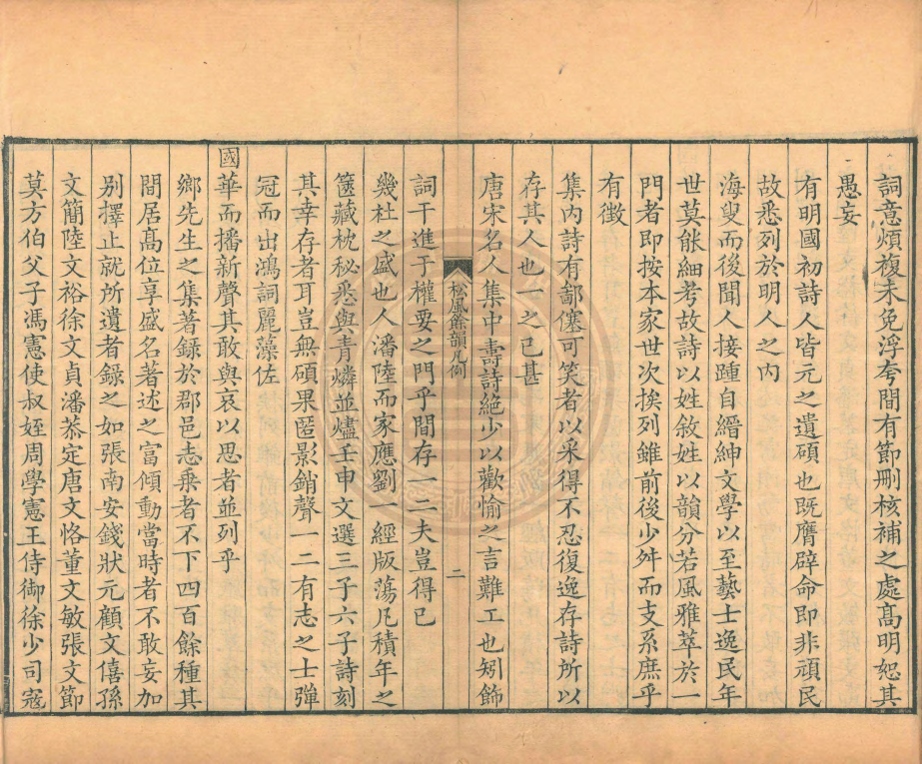 詞意煩複未免浮夸間有節刪核補之處髙明恕其
愚妄
有明國初詩人皆元之遺碩也既膺辟命即非頑民
故悉列於明人之內
海叟而後聞人接踵自縉紳文學以至藝士逸民年
世莫能細考故詩以姓敘姓以韻分若風雅萃於一
門者即按本家世次挨列雖前後少舛而支系庶乎
有徵
集內詩有鄙僿可笑者以采得不忍復逸存詩所以
存其人也一之已甚
唐宋名人集中壽詩絕少以歡愉之言難工也矧飾
松風餘韻凡例
二
詞干進于權要之門乎間存一二夫豈得已
幾杜之盛也人潘陸而家應劉一經版蕩凡積年之
篋藏枕秘悉與青燐並燼壬申文選三子六子詩刻
其幸存者耳豈無碩果匿影銷聲一二有志之士彈
冠而出鴻詞麗藻佐
國華而播新聲其敢與哀以思者並列乎
鄉先生之集著録於郡邑志乘者不下四百餘種其
間居髙位享盛名著述之富傾動當時者不敢妄加
別擇止就所遺者録之如張南安錢狀元顧文僖孫
文簡陸文裕徐文貞潘恭定唐文恪董文敏張文節
莫方伯父子馮憲使叔姪周學憲王侍御徐少司寇